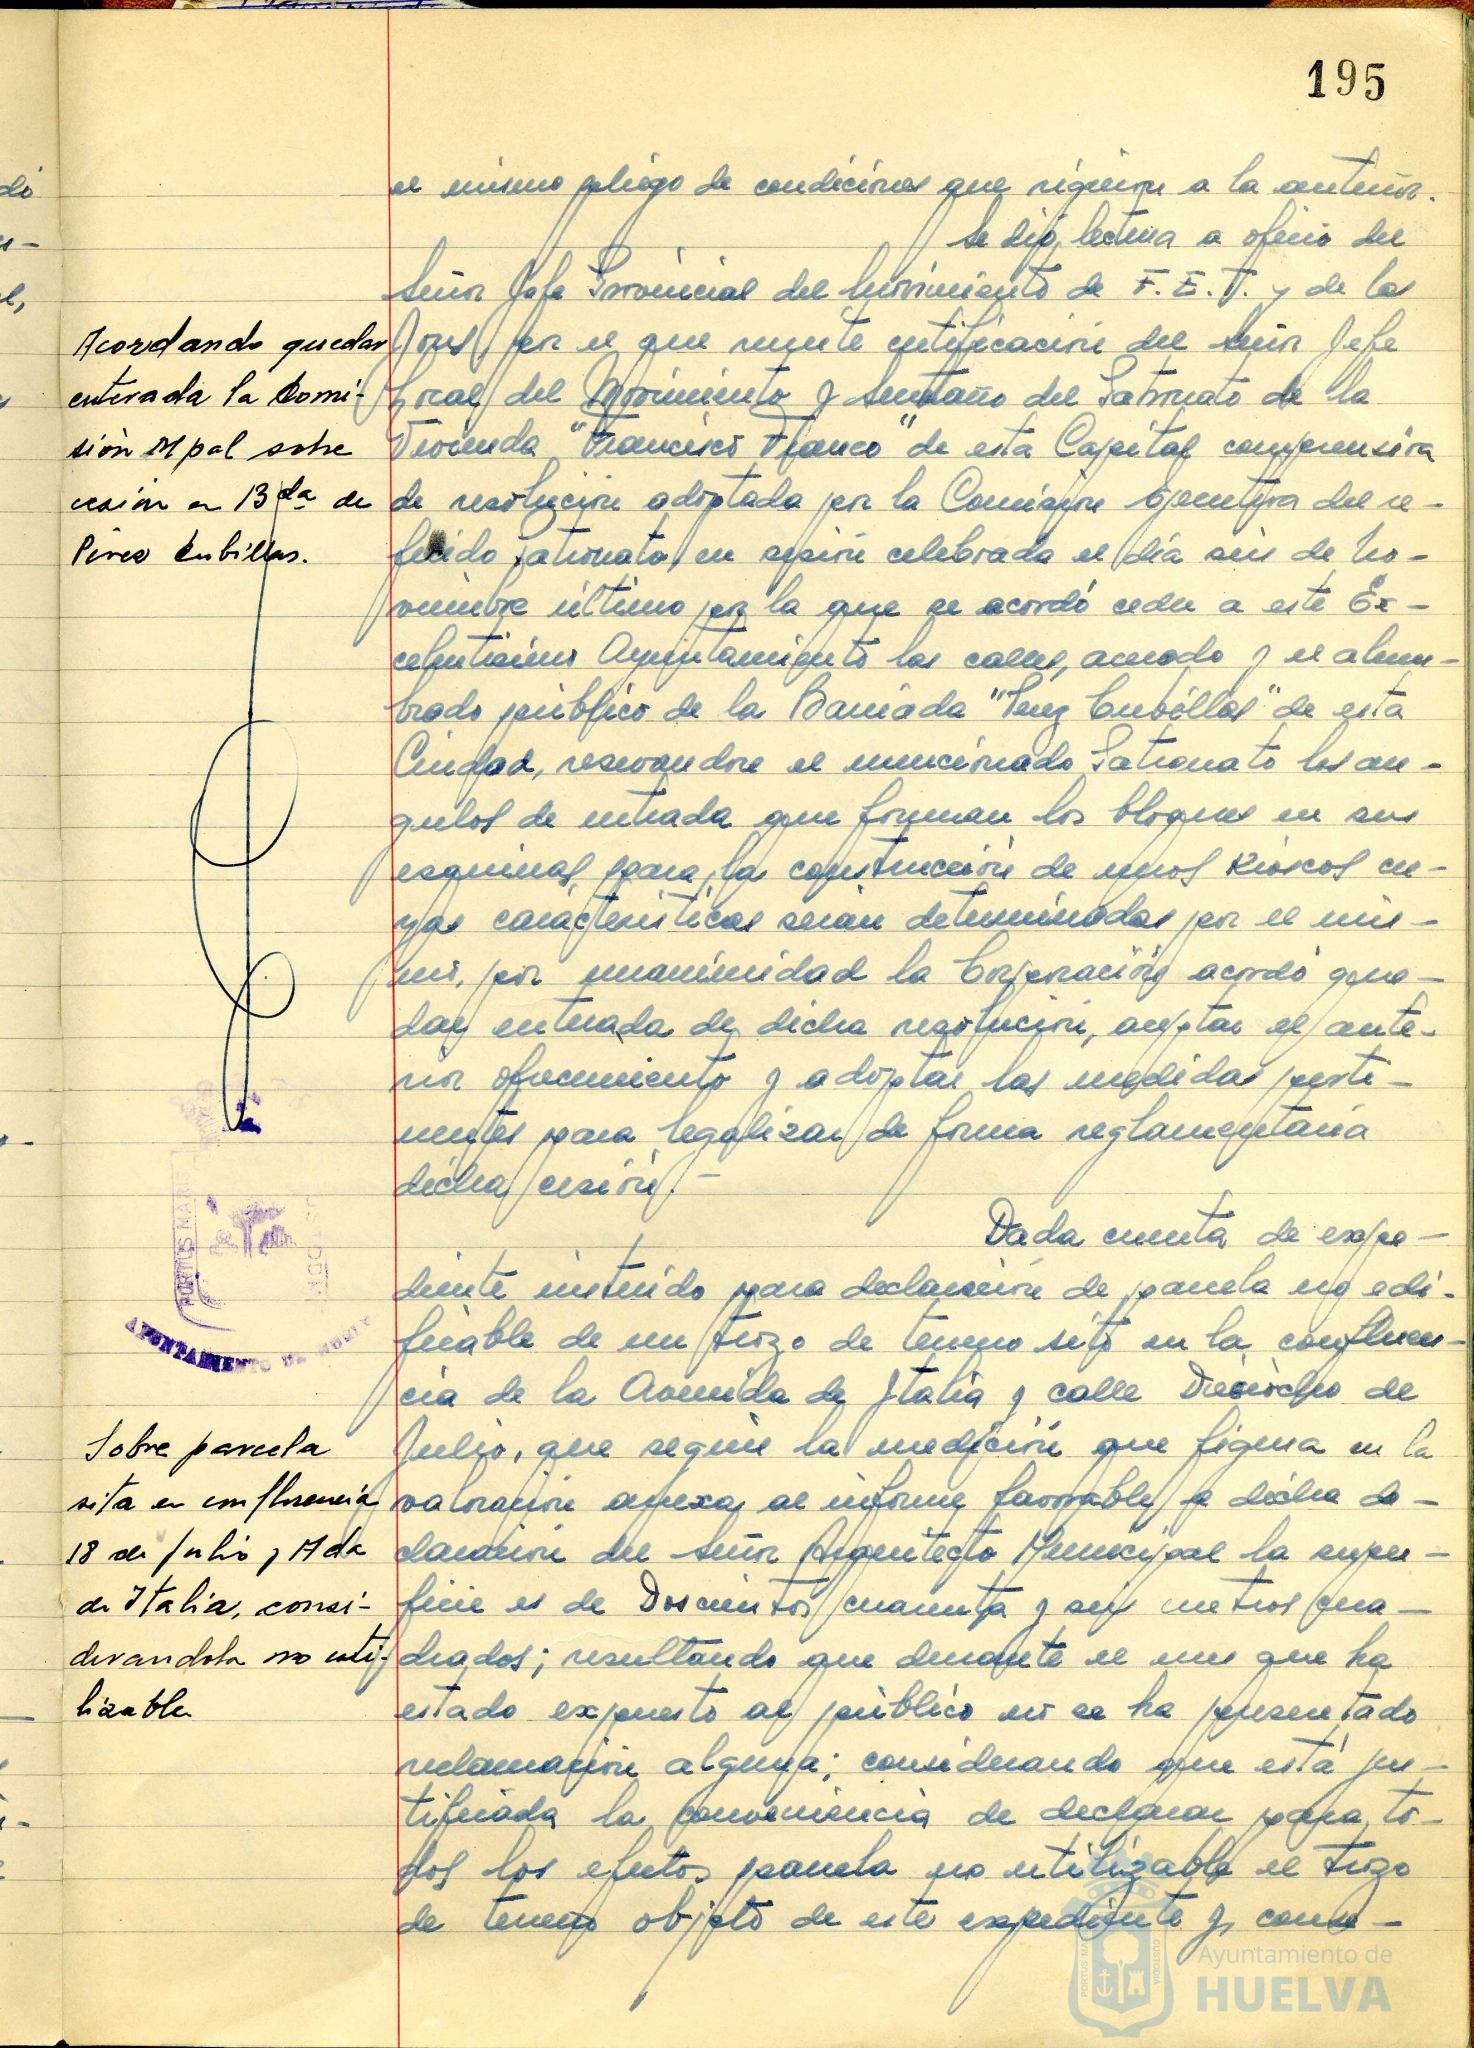 195
el mismo pliego de condiciones que rigieron a la anterior.
Se dió lectura a oficio del
Señor Jefe Provincial del Movimiento de F.E.T. y de las
Jons, por el que remite certificación del Señor Jefe
Local del Movimiento y Secretario del Patronato de la
Vivienda "Francisco Franco" de esta Capital comprensiva
de resolución adoptada por la Comisión Ejecutiva del re-
ferido Patronato, en sesión celebrada el día seis de No-
viembre último por la que se acordó ceder a este Ex-
celentísimo Ayuntamiento las calles, acerado y el alum-
brado público de la Barriada "Perez Cubillas" de esta
Ciudad, reservandose el mencionado Patronato los an-
gulos de entrada que forman los bloques en sus
esquinas, para la construcción de unos Kioscos cu-
yas características serían determinadas por el mis-
mo, por unanimidad la Corporación acordó que-
dar enterada de dicha resolución, aceptar el ante-
rior ofrecimiento y adoptar las medidas perti-
nentes para legalizar de forma reglamentaria
dicha cesión.-
Dada cuenta de expe-
diente instruido para declaración de parcela no edi-
ficable de un trozo de terreno sito en la confluen-
cia de la Avenida de Italia y calle Dieciocho de
Julio, que según la medición que figura en la
valoración anexa al informe favorable a dicha de-
claración del Señor Arquitecto Municipal la super-
ficie es de Doscientos cuarenta y seis metros cua-
drados; resultando que durante el mes que ha
estado expuesto al público no se ha presentado
reclamación alguna; considerando que está jus-
tificada la conveniencia de declarar para to-
dos los efectos parcela no utilizable el trozo
de terreno objeto de este expediente y, conse-
Acordando quedar
enterada la Comi-
sión Mpal sobre
cesión en Bda de
Pérez Cubillas.
PORTUS MARIS
AYUNTAMIENTO DE HUELVA
Sobre parcela
sita en confluencia
18 de Julio y Avda
de Italia, consi-
derandola no uti-
lizable
Ayuntamiento de
HUELVA